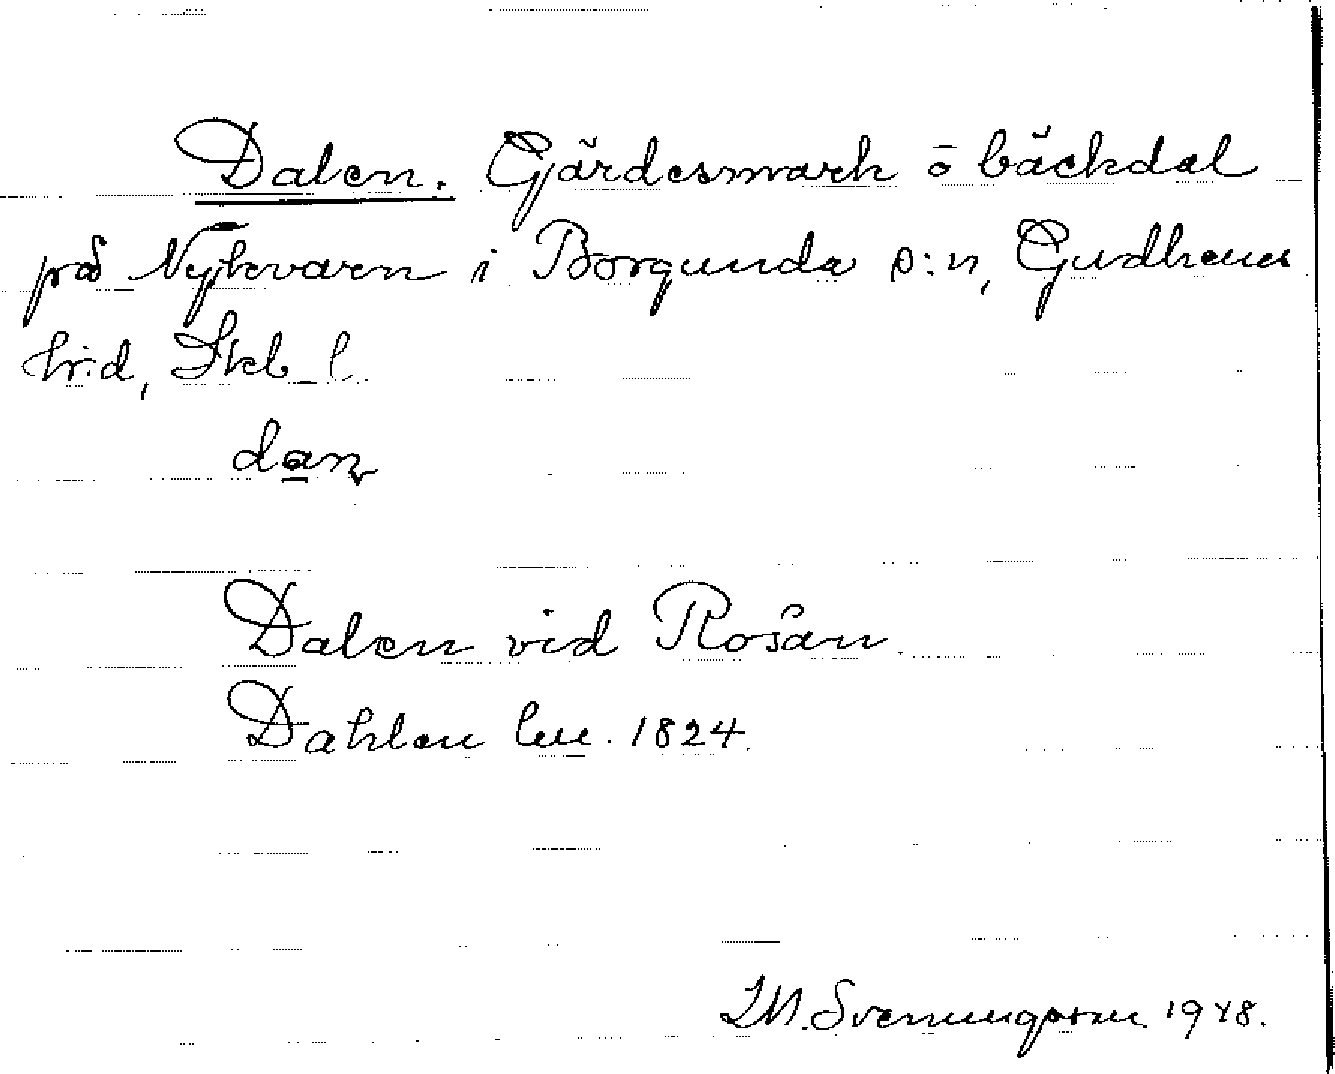 Dalen. Gjärdesmark o bäckdal
på Nykvarn i Borgunda s:n, Gudhems
hrd, Skb l.
dan
Dalen vid Rosån
Dahlen lm. 1824.
Svenungsson 1948.